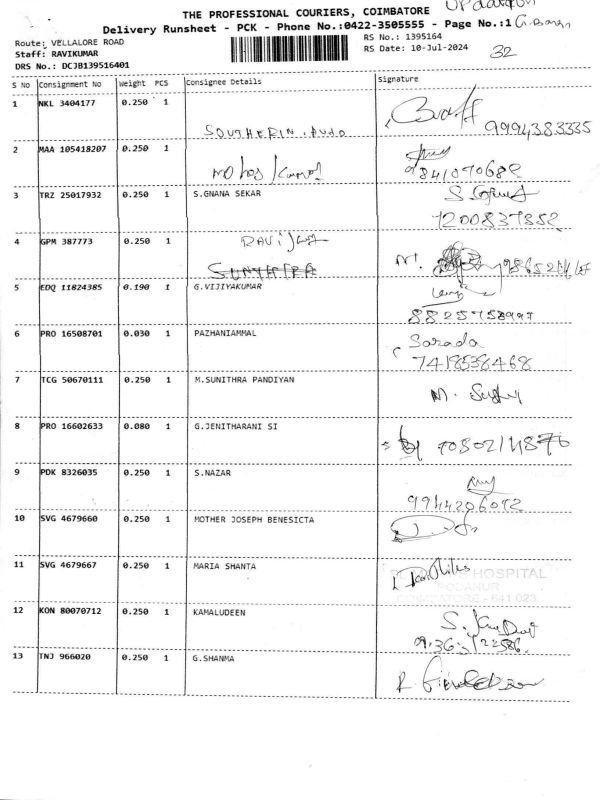 THE PROFESSIONAL COURIERS, COIMBATORE
Delivery Runsheet - PCK - Phone No.:0422-3505555 - Page No.:1
Route: VELLALORE ROAD
RS No.: 1395164
Staff: RAVIKUMAR
RS Date: 10-Jul-2024
32
DRS No.: DCJB139516401
S No Consignment No Weight PCS Consignee Details Signature
1 NKL 3404177 0.250 1
SOUTHERIN. AUTO 9994383335
2 MAA 105418207 0.250 1
9841070682
3 TRZ 25017932 0.250 1 S.GNANA SEKAR
7200837352
4 GPM 387773 0.250 1
5 EDQ 11824385 0.190 1 G.VIJIYAKUMAR
8825758997
6 PRO 16508701 0.030 1 PAZHANIAMMAL Sarada
7418538468
7 TCG 50670111 0.250 1 M.SUNITHRA PANDIYAN M.
8 PRO 16602633 0.080 1 G.JENITHARANI SI
9 PDK 8326035 0.250 1 S.NAZAR
9944206092
10 SVG 4679660 0.250 1 MOTHER JOSEPH BENESICTA
11 SVG 4679667 0.250 1 MARIA SHANTA
HOSPITAL
PODANUR
COIMBATORE - 641 023
12 KON 80070712 0.250 1 KAMALUDEEN
13 TNJ 966020 0.250 1 G.SHANMA